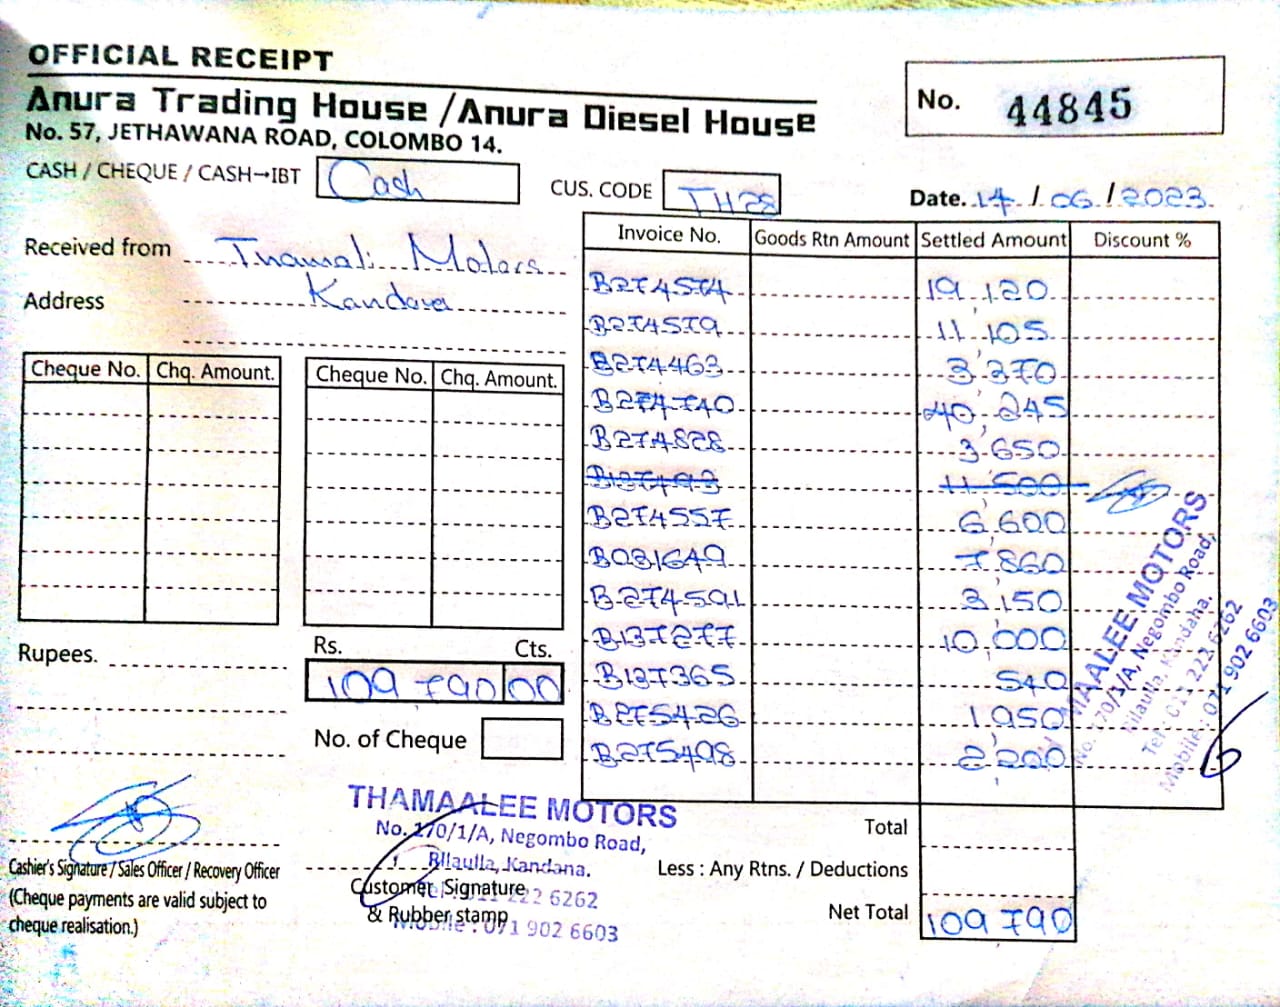 OFFICIAL RECEIPT
Anura Trading House /Anura Diesel House
No. 57, JETHAWANA ROAD, COLOMBO 14.
No. 44845
CASH / CHEQUE / CASH→IBT Cash
CUS. CODE TH28
Date. 14 / 06 / 2023
Received from Thamali Motors
Address Kandana
Invoice No. Goods Rtn Amount Settled Amount Discount %
B274574 19,120
B274579 11,105
B274463 3,370
B274740 40,245
B274828 3,650
B137493 11,500
B274557 6,600
B031649 7,860
B274591 3,150
B137277 10,000
B137365 540
B275426 1,950
B275498 2,200
Cheque No. Chq. Amount. Cheque No. Chq. Amount.
Rupees.
Rs. Cts.
109 790 00
No. of Cheque
THAMAALEE MOTORS
No. 170/1/A, Negombo Road,
Rilaulla, Kandana.
Tel: 011 222 6262
Mobile : 071 902 6603
Total
Less : Any Rtns. / Deductions
Net Total 109 790
Cashier's Signature / Sales Officer / Recovery Officer
(Cheque payments are valid subject to
cheque realisation.)
Customer Signature
& Rubber stamp
THAMAALEE MOTORS
No. 170/1/A, Negombo Road,
Rilaulla, Kandana.
Tel: 011 222 6262
Mobile : 071 902 6603